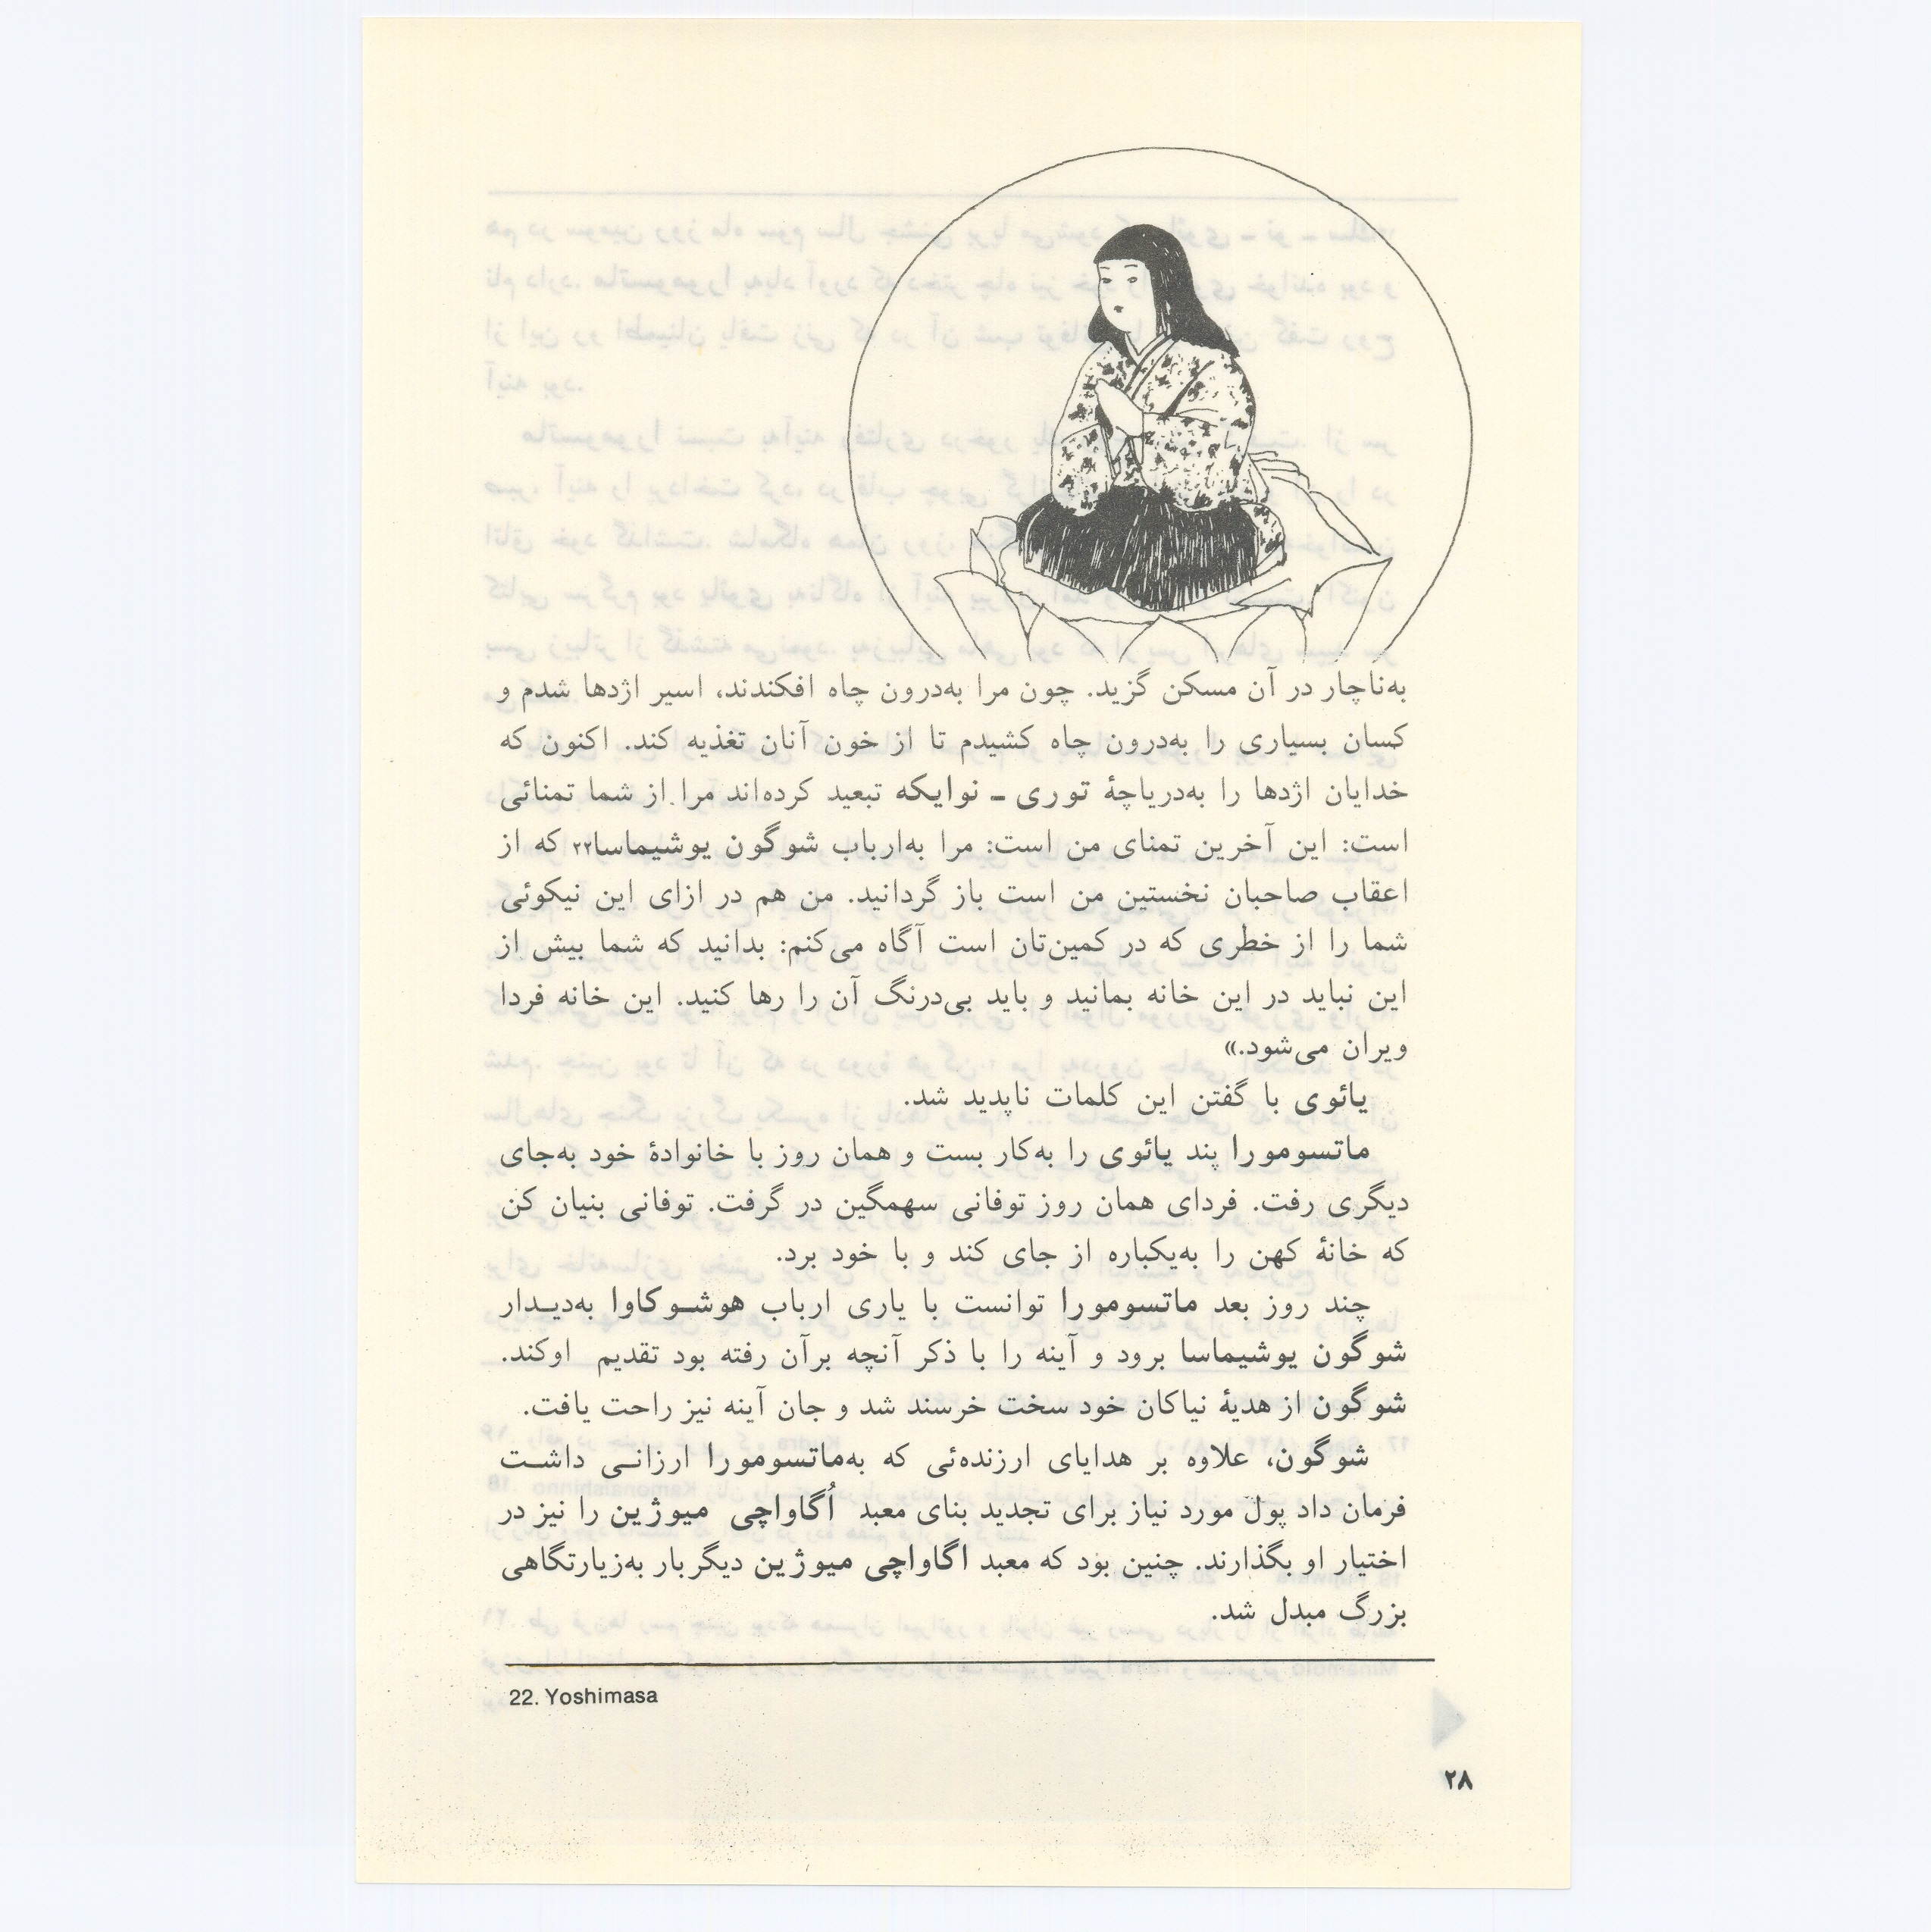 به‌ناچار در آن مسکن گزید. چون مرا به‌درون چاه افکندند، اسیر اژدها شدم و
کسان بسیاری را به‌درون چاه کشیدم تا از خون آنان تغذیه کند. اکنون که
خدایان اژدها را به‌دریاچهٔ توری ـ نوایکه تبعید کرده‌اند مرا از شما تمنائی
است: این آخرین تمنای من است: مرا به‌ارباب شوگون یوشیماسا۲۲ که از
اعقاب صاحبان نخستین من است باز گردانید. من هم در ازای این نیکوئی
شما را از خطری که در کمین‌تان است آگاه می‌کنم: بدانید که شما بیش از
این نباید در این خانه بمانید و باید بی‌درنگ آن را رها کنید. این خانه فردا
ویران می‌شود.»
یائوی با گفتن این کلمات ناپدید شد.
ماتسومورا پند یائوی را به‌کار بست و همان روز با خانوادهٔ خود به‌جای
دیگری رفت. فردای همان روز توفانی سهمگین در گرفت. توفانی بنیان کن
که خانهٔ کهن را به‌یکباره از جای کند و با خود برد.
چند روز بعد ماتسومورا توانست با یاری ارباب هوشـوکاوا به‌دیـدار
شوگون یوشیماسا برود و آینه را با ذکر آنچه برآن رفته بود تقدیم اوکند.
شوگون از هدیهٔ نیاکان خود سخت خرسند شد و جان آینه نیز راحت یافت.
شوگون، علاوه بر هدایای ارزنده‌ئی که به‌ماتسومورا ارزانـی داشـت
فرمان داد پول مورد نیاز برای تجدید بنای معبد اُگاواچی میوژین را نیز در
اختیار او بگذارند. چنین بود که معبد اگاواچی میوژین دیگربار به‌زیارتگاهی
بزرگ مبدل شد.
22. Yoshimasa
۲۸